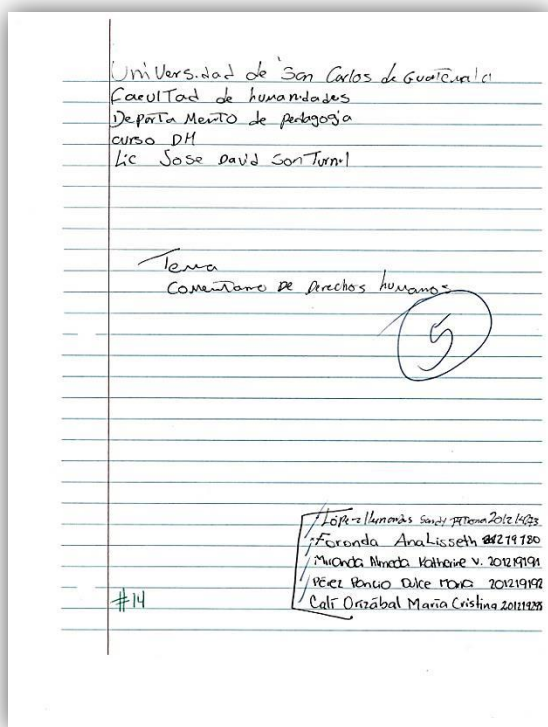 Universidad de San Carlos de Guatemala
Facultad de humanidades
DepartaMento de pedagogia
curso DH
Lic Jose David Son Turnil
Tema
Comentario De Derechos humanos
5
López Sandy
Foronda Ana Lisseth 219780
Miranda Almeda Katherine V. 201219191
Pérez Poncio Dulce María 201219192
Calí Orizábal María Cristina
#14